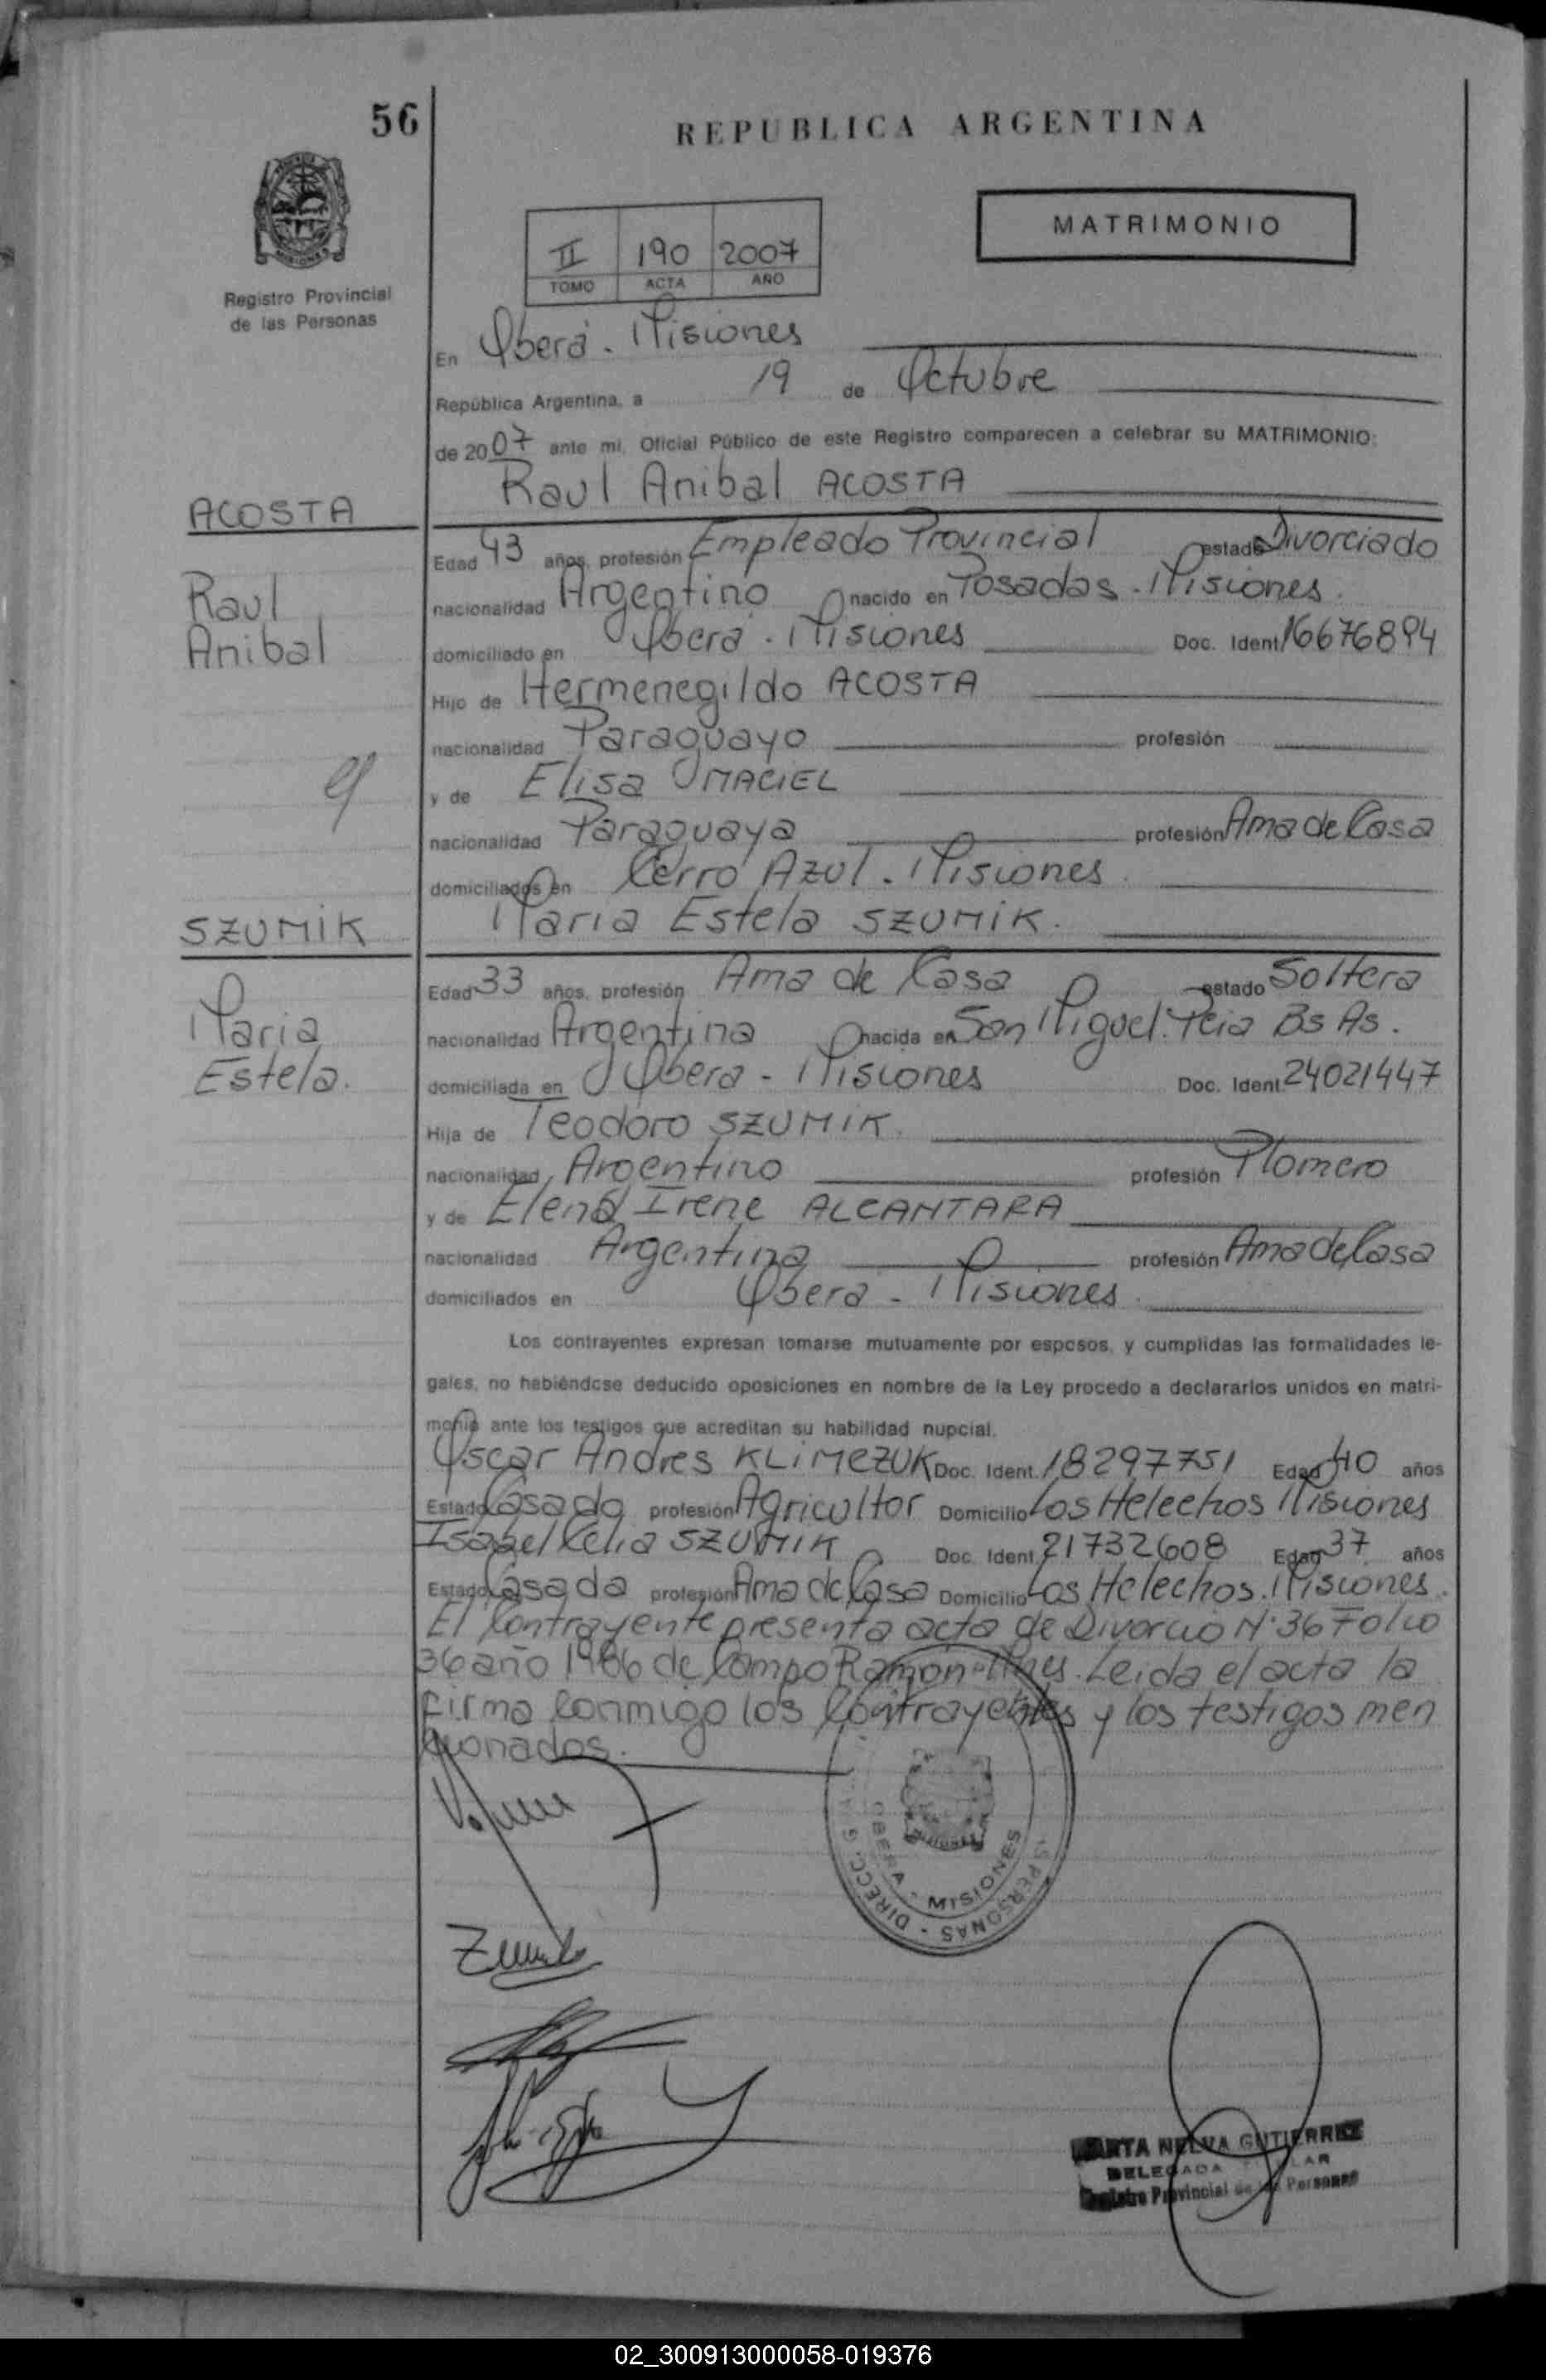 56
REPUBLICA ARGENTINA
MATRIMONIO
II 190 2007
TOMO ACTA AÑO
MISIONES
Registro Provincial
de las Personas
En Oberá - Misiones
República Argentina, a 19 de Octubre
de 2007 ante mi, Oficial Público de este Registro comparecen a celebrar su MATRIMONIO:
Raul Anibal ACOSTA
ACOSTA
Raul
Anibal
Edad 43 años, profesión Empleado Provincial estado Divorciado
nacionalidad Argentino nacido en Posadas - Misiones.
domiciliado en Oberá - Misiones Doc. Ident. 16676894
Hijo de Hermenegildo ACOSTA
nacionalidad Paraguayo profesión
y de Elisa MACIEL
nacionalidad Paraguaya profesión Ama de Casa
domiciliados en Cerro Azul - Misiones.
Maria Estela SZUMIK.
SZUMIK
Maria
Estela.
Edad 33 años, profesión Ama de Casa estado Soltera
nacionalidad Argentina nacida en San Miguel. Pcia Bs As.
domiciliada en Oberá - Misiones Doc. Ident. 24021447
Hija de Teodoro SZUMIK.
nacionalidad Argentino profesión Plomero
y de Elena Irene ALCANTARA
nacionalidad Argentina profesión Ama de Casa
domiciliados en Oberá - Misiones.
Los contrayentes expresan tomarse mutuamente por esposos, y cumplidas las formalidades le-
gales, no habiéndose deducido oposiciones en nombre de la Ley procedo a declararlos unidos en matri-
monio ante los testigos que acreditan su habilidad nupcial.
Oscar Andres KLIMEZUK Doc. Ident. 18297751 Edad 40 años
Estado Casado profesión Agricultor Domicilio Los Helechos Misiones
Isabel Celia SZUMIK Doc. Ident. 21732608 Edad 37 años
Estado Casada profesión Ama de Casa Domicilio Los Helechos. Misiones.
El Contrayente presenta acta de Divorcio N° 36 Folio
36 año 1986 de Campo Ramón - Mnes. Leida el acta la
firma conmigo los Contrayentes y los testigos men
cionados.
OBERA - MISIONES
DIRECC. PERSONAS
MARTA NELVA GUTIERREZ
DELEGADA TITULAR
Registro Provincial de las Personas
02_300913000058-019376